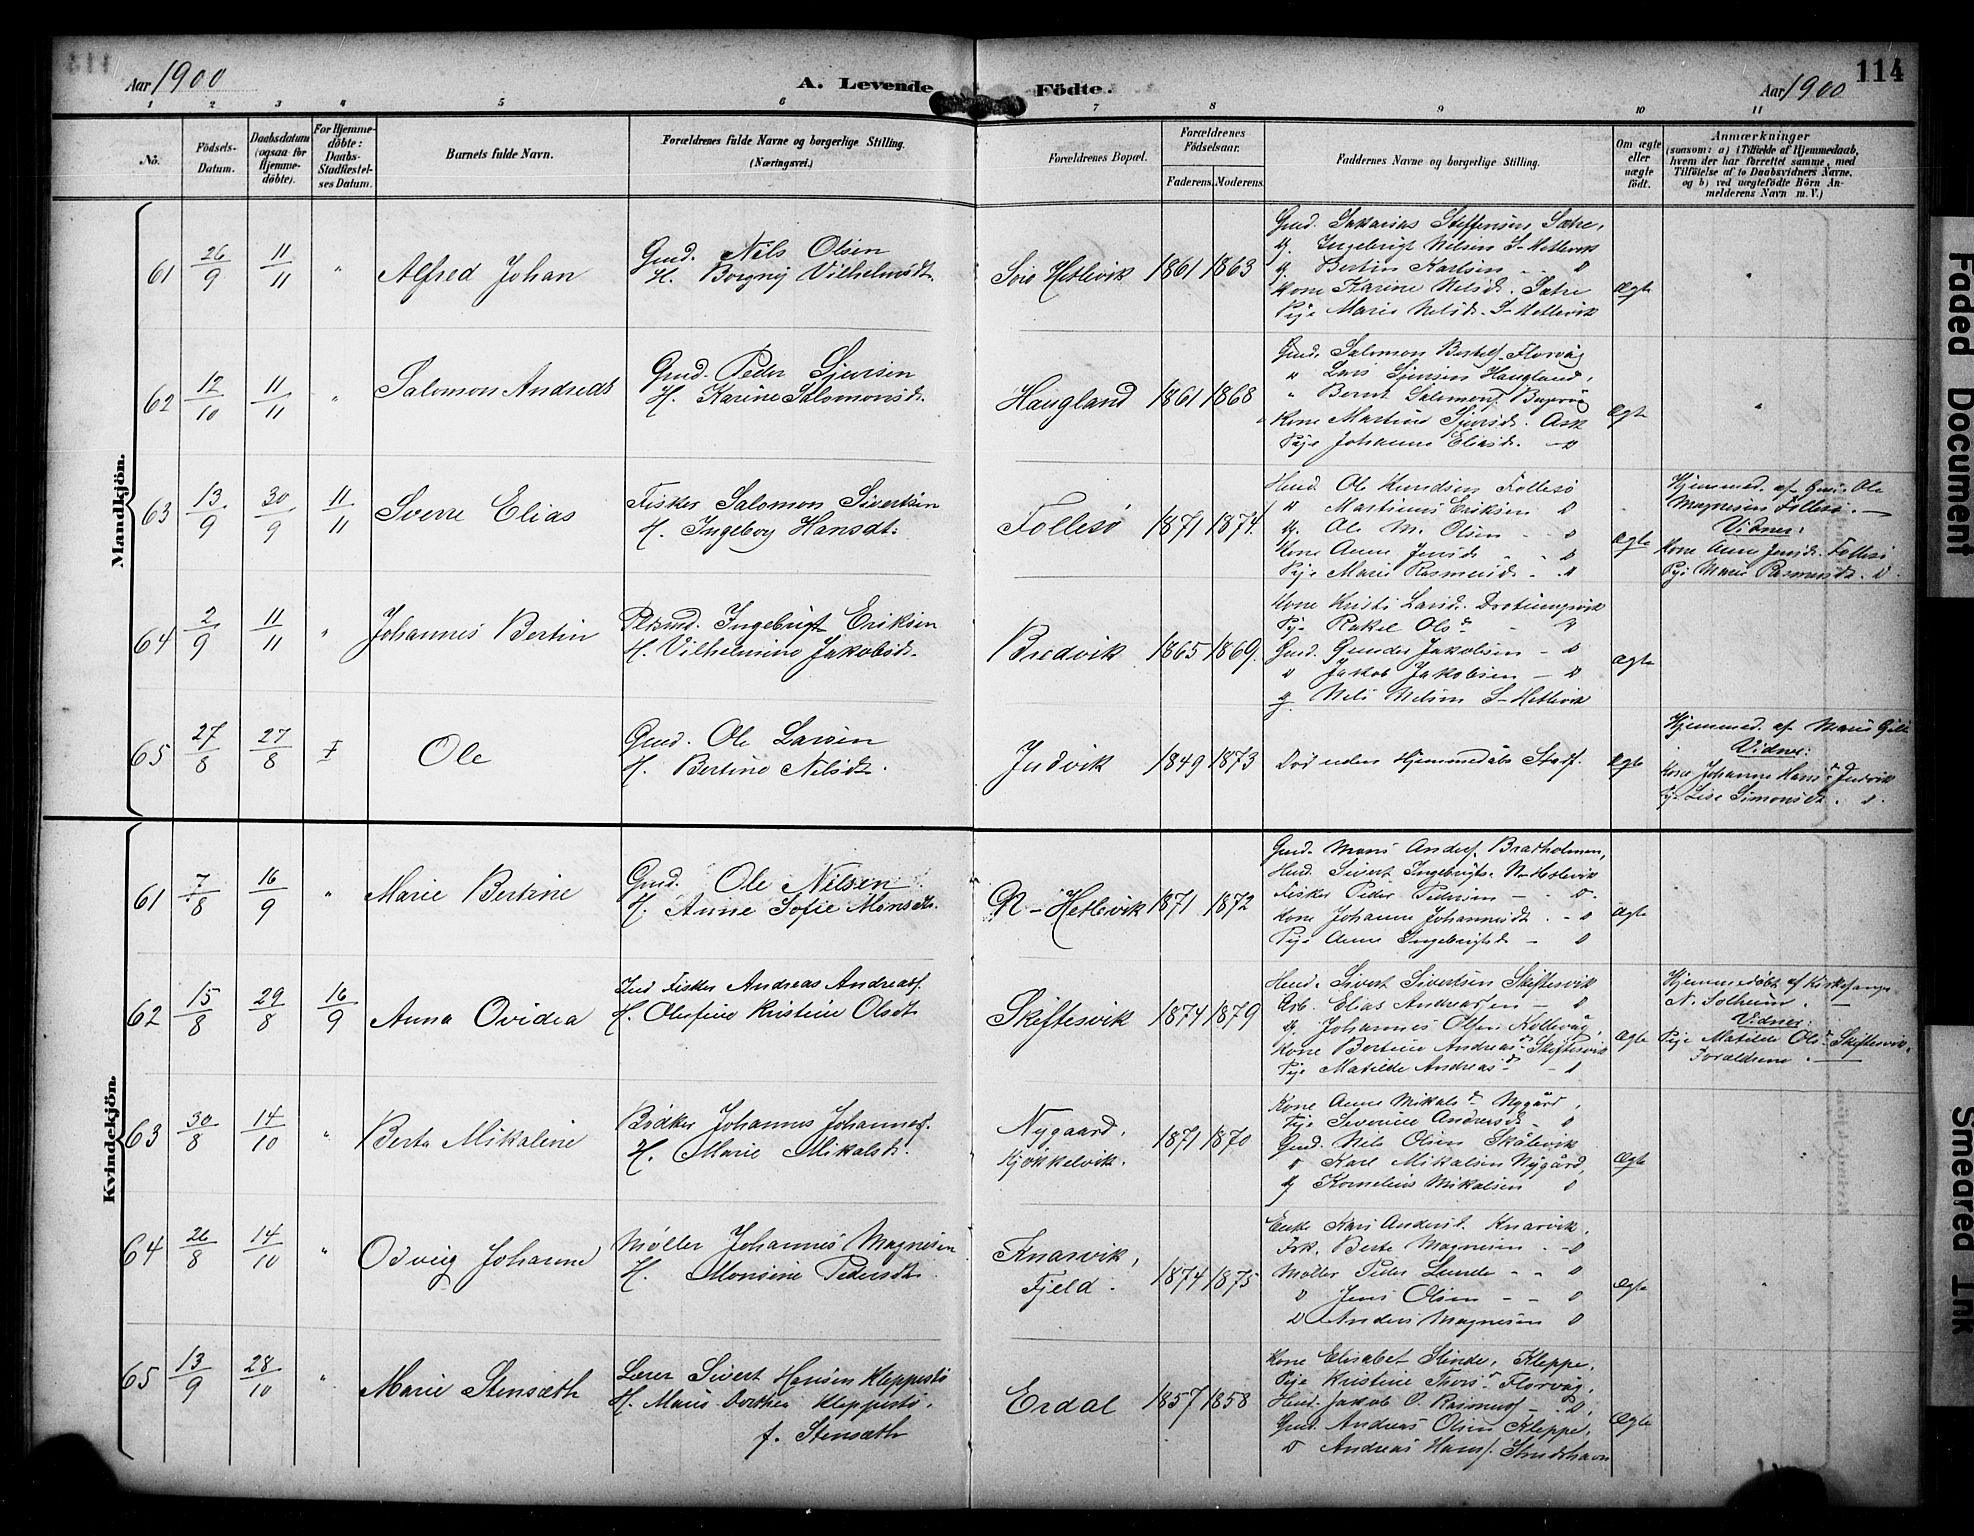 114
Aar 1900
A. Levende Födte.
Aar 1900
1 2 3 4 5 6 7 8 9 10 11
No.
Födsels-Datum.
Daabsdatum (ogsaa for Hjemme-döbte).
For Hjemme-döbte: Daabs-Stadfæstel-ses Datum.
Barnets fulde Navn.
Forældrenes fulde Navne og borgerlige Stilling.
(Næringsvei.)
Forældrenes Bopæl.
Forældrenes Födselsaar.
Faderens. Moderens.
Faddernes Navne og borgerlige Stilling.
Om ægte eller uægte födt.
Anmærkninger
(saasom: a) i Tilfælde af Hjemmedaab,
hvem der har forrettet samme, med
Tilföielse af to Daabsvidners Navne,
og b) ved uægtefödte Börn An-
melderens Navn m. V.)
Mandkjön.
61 26/9 11/11 " Alfred Johan
Gmd. Nils Olsen
H. Borgny Vilhelmsdt.
Søre Hetlevik 1861 1863
Gmd. Sakarias Steffensen Sætre,
Ingebrigt Nilsen S-Hetlevik
Bertin Karlsen - D
Kone Karine Nilsd. Sætre
Pige Marie Nilsd. S-Hetlevik
Ægte "
62 12/10 11/11 " Salomon Andreas
Gmd. Peder Sjursen
H. Karine Salomonsd.
Haugland 1861 1868
Gmd. Salomon Bertels. Florvåg
" Lars Sjursen Haugland,
" Bernt Salomons.
Kone Martine Sjursd. Ask
Pige Johanne Eliasd. - D
Ægte "
63 13/9 30/9 11/11 Sverre Elias
Fisker Salomon Sivertsen
H. Ingeborg Hansdt.
Follesø 1871 1874.
Husd. Ole Knudsen Follesø
D Martinus Eriksen D
Ole M. Olsen - D
Kone Anne Jensd. - D
Pige Marie Rasmusd. - D
Ægte
Hjemmed. af Gmd. Ole
Magnesen Follesø. -
Vidner:
Kone Anne Jensd. Follesø
Pige Marie Rasmusdt. D.
64 2/9 11/11 " Johannes Bertin
Ingebrigt Eriksen
H. Vilhelmine Jakobsd.
Bredvik 1865 1869.
Kone Kristi Larsd.
Pige Rakel Olsd - D
Gmd. Gunder Jakobsen - D
D Jakob Jakobsen - D
Nils Nilsen S-Hetlevik
Ægte
65 27/8 27/8 Ole
Gmd. Ole Larsen
H. Bertine Nilsdt.
Judvik 1849 1873
Død uden Hjemmedåbs Stadf.
Ægte
Hjemmed. af Maris
Vidner:
Kone Johanne Hansd Judvik
Pige Lise Simonsdt. D.
Kvindekjön.
61 7/8 16/9 " Marie Bertine
Gmd. Ole Nilsen
H. Anne Sofie Monsdt.
N-Hetlevik 1871 1872
Gmd. Mons Anders. Bratholmen,
Husd. Sivert Ingebrigts. N-Hetlevik
Fisker Peder Pedersen - D.
Kone Johanne Johannesdt - D
Pige Anne Ingebrigtsd. - D
Ægte
62 15/8 29/8 16/9 Anna Ovidea
Ind Fisker Andreas Andreass.
H. Olufine Kristine Olsdt
Skiftesvik 1874 1879
Husd. Sivert Sivertsen Skiftesvik
Arb. Elias Andreassen - D
Johannes Olsen Kollevåg,
Kone Bertine Andreasd Skiftesvik
Pige Matilde Andreasd - D
Ægte
Hjemmedøbt af Kirkesanger
N. Solheim. -
Vidner:
Pige Matilde Olsd Skiftesvik.
Forældrene. -
63 30/8 14/10 " Berta Mikaline
Bødker Johannes Johannes.
H. Marie Mikalsd.
Nygaard, Kjøkkelvik. 1871 1870
Kone Anne Mikalsd Nygård,
Pige Severine Andersd. - D
Gmd. Nils Olsen Skålevik
D Karl Mikalsen Nygård,
Kornelius Mikalsen D
Ægte
64 26/8 14/10 " Odveig Johanne
Møller Johannes Magnesen
H. Monsine Pedersdt.
Knarvik, Fjeld. 1874 1875
Enke Kari Andersd. Knarvik,
Frk. Berte Magnesen - D
Møller Peder Lunde - - D
D Jens Olsen - - D
D Anders Magnesen D
Ægte "
65 13/9 28/10 " Marie Stensæth
Lærer Sivert Hansen Kleppestø
H. Maria Dorthea Kleppestø,
f. Stensæth
Erdal 1857 1858
Kone Elisabet Stinde, Kleppe,
Pige Kristine Thorsd Florvåg,
Husd. Jakob O. Rasmuss - D,
Gmd. Andreas Olsen Kleppe,
D Andreas Hans. Strudshavn
Ægte
Faded Document
Smeared Ink